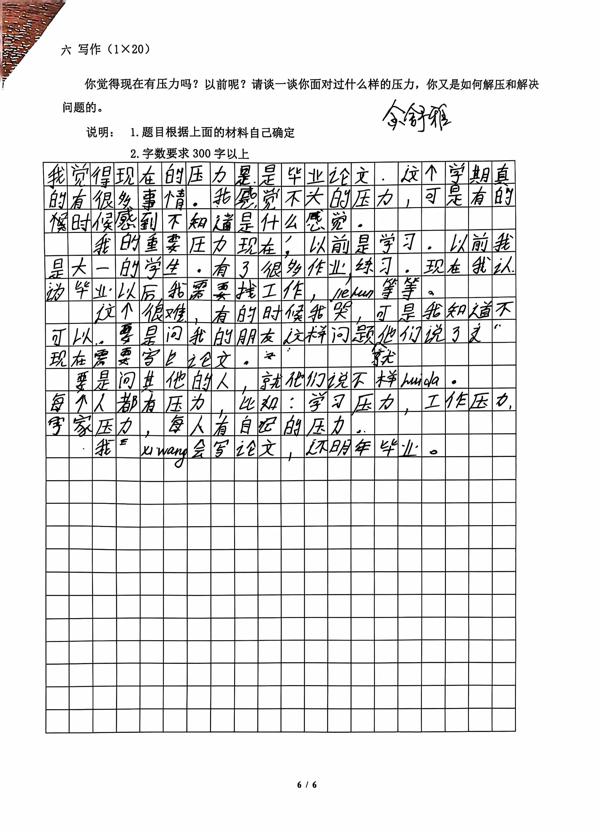 六 写作（1×20）
你觉得现在有压力吗？以前呢？请谈一谈你面对过什么样的压力，你又是如何解压和解决
问题的。
说明： 1.题目根据上面的材料自己确定
2.字数要求 300 字以上
我觉得现在的压力是是毕业论文．这个学期真
的有很多事情．我感觉不大的压力，可是有的
候时候感到不知道是什么感觉．
我的重要压力现在，以前是学习．以前我
是大一的学生．有了很多作业，练习．现在我认
为毕业以后我需要找工作，jiehun等等。
这个很难，有的时候我哭，可是我知道不
可以．要是问我的朋友这样问题他们说了
现在需要写论文。
就
要是问其他的人，就他们说不样huida。
每个人都有压力，比如：学习压力，工作压力，
家压力，每人有自己的压力．
我 xiwang会写论文，还明年毕业。
6 / 6